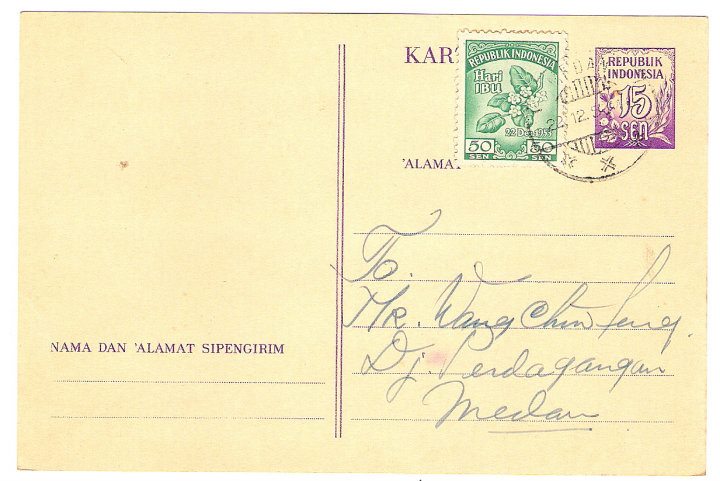 KAR
REPUBLIK INDONESIA
Hari
IBU
22 Des.
50 50
SEN SEN
REPUBLIK
INDONESIA
15
SEN
22.12.5
'ALAMA
To.
Mr. Wang Chin
Dj. Perdagangan
Medan
NAMA DAN 'ALAMAT SIPENGIRIM